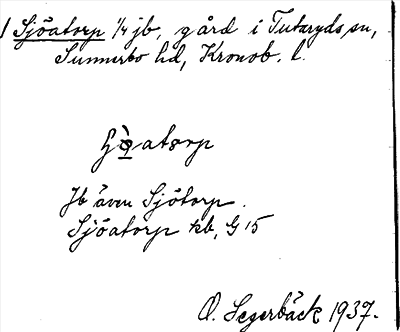 1 Sjöatorp 1/4 jb, gård i Tutaryds sn,
Sunnerbo hd, Kronob. l.
Jb även Sjötorp.
Sjöatorp kb, G 15
O. Segerbäck 1937.